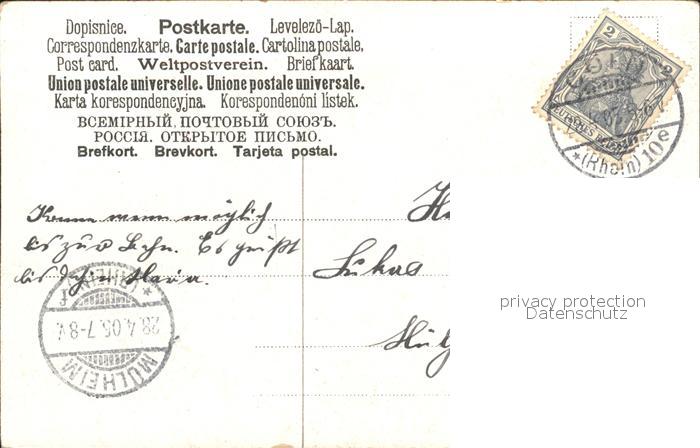 Dopisnice. Postkarte. Levelező-Lap.
Correspondenzkarte. Carte postale. Cartolina postale,
Post card. Weltpostverein. Briefkaart.
Union postale universelle. Unione postale universale.
Karta korespondencyjna. Korespondenóni listek.
ВСЕМІРНЫЙ. ПОЧТОВЫЙ СОЮЗЪ.
РОССІЯ. ОТКРЫТОЕ ПИСЬМО.
Brefkort. Brevkort. Tarjeta postal.
2 2
(Rhein) 10e
Komme wenn möglich
bis zur Bahn. Es grüßt
bis Maria.
Lukas
28.4.05.7-8V.
MÜLHEIM
(RHEIN)
privacy protection
Datenschutz